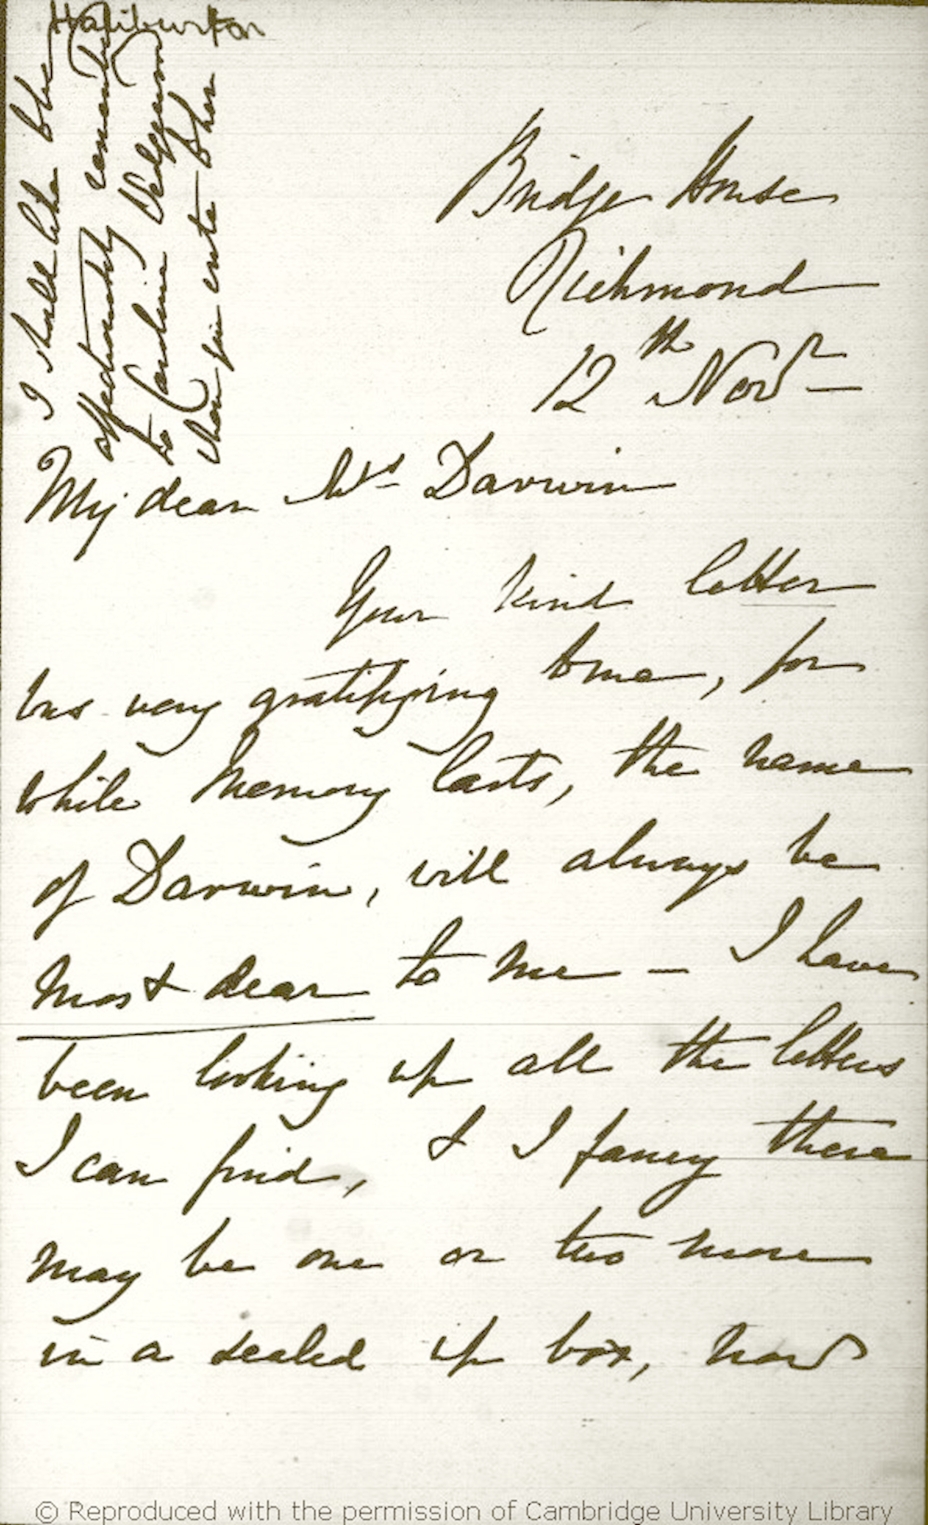 Haliburton
I shall like to be
affectionately remembd
to Caroline Wedgwood
when you write to her
Bridge House
Richmond
12th Novr
My dear Mrs Darwin
Your kind letter
was very gratifying to me, for
while Memory lasts, the name
of Darwin, will always be
most dear to me – I have
been looking up all the letters
I can find, & I fancy there
may be one or two more
in a sealed up box, now
© Reproduced with the permission of Cambridge University Library